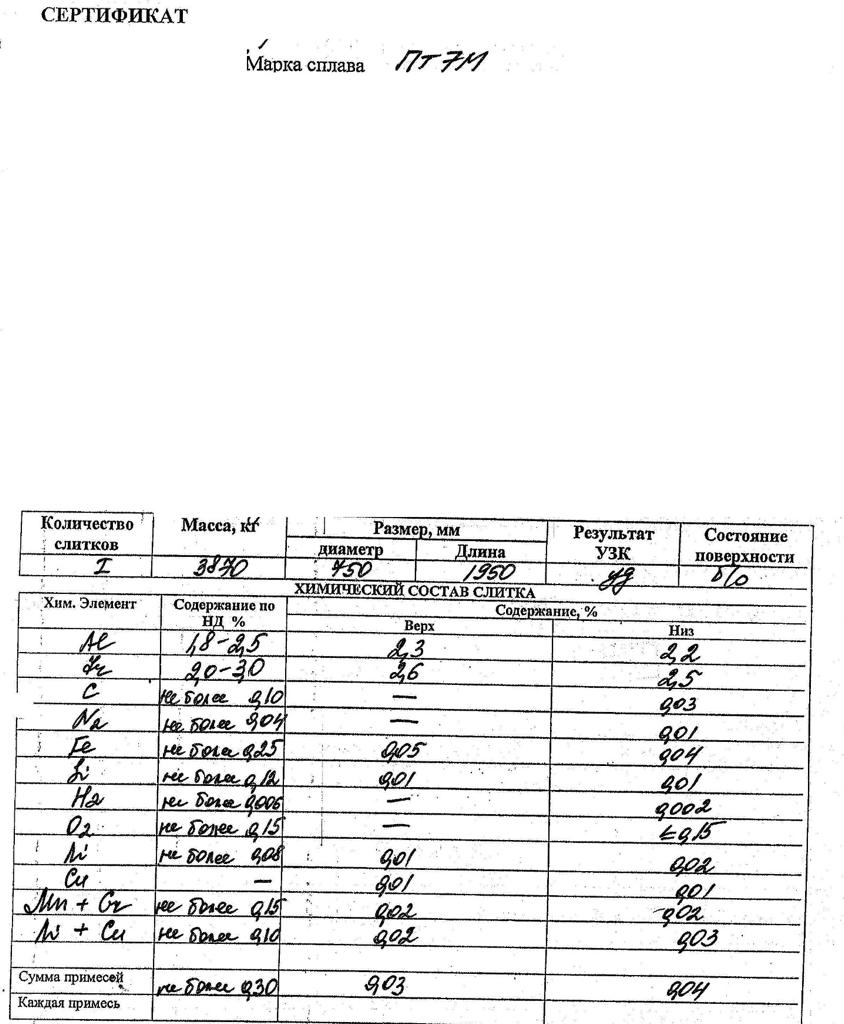 СЕРТИФИКАТ
Марка сплава ПТ7М
Количество слитков Масса, кг Размер, мм Результат УЗК Состояние поверхности
диаметр Длина
I 3870 750 1950 уд б/о
ХИМИЧЕСКИЙ СОСТАВ СЛИТКА
Хим. Элемент Содержание по НД % Содержание, %
Верх Низ
Al 1,8-2,5 2,3 2,2
Zr 2,0-3,0 2,6 2,5
C не более 0,10 — 0,03
N2 не более 0,04 — 0,01
Fe не более 0,25 0,05 0,04
Si не более 0,12 0,01 0,01
H2 не более 0,006 — 0,002
O2 не более 0,15 — ≤0,15
Ni не более 0,08 0,01 0,02
Cu — 0,01 0,01
Mn + Cr не более 0,15 0,02 0,02
Ni + Cu не более 0,10 0,02 0,03
Сумма примесей не более 0,30 0,03 0,04
Каждая примесь